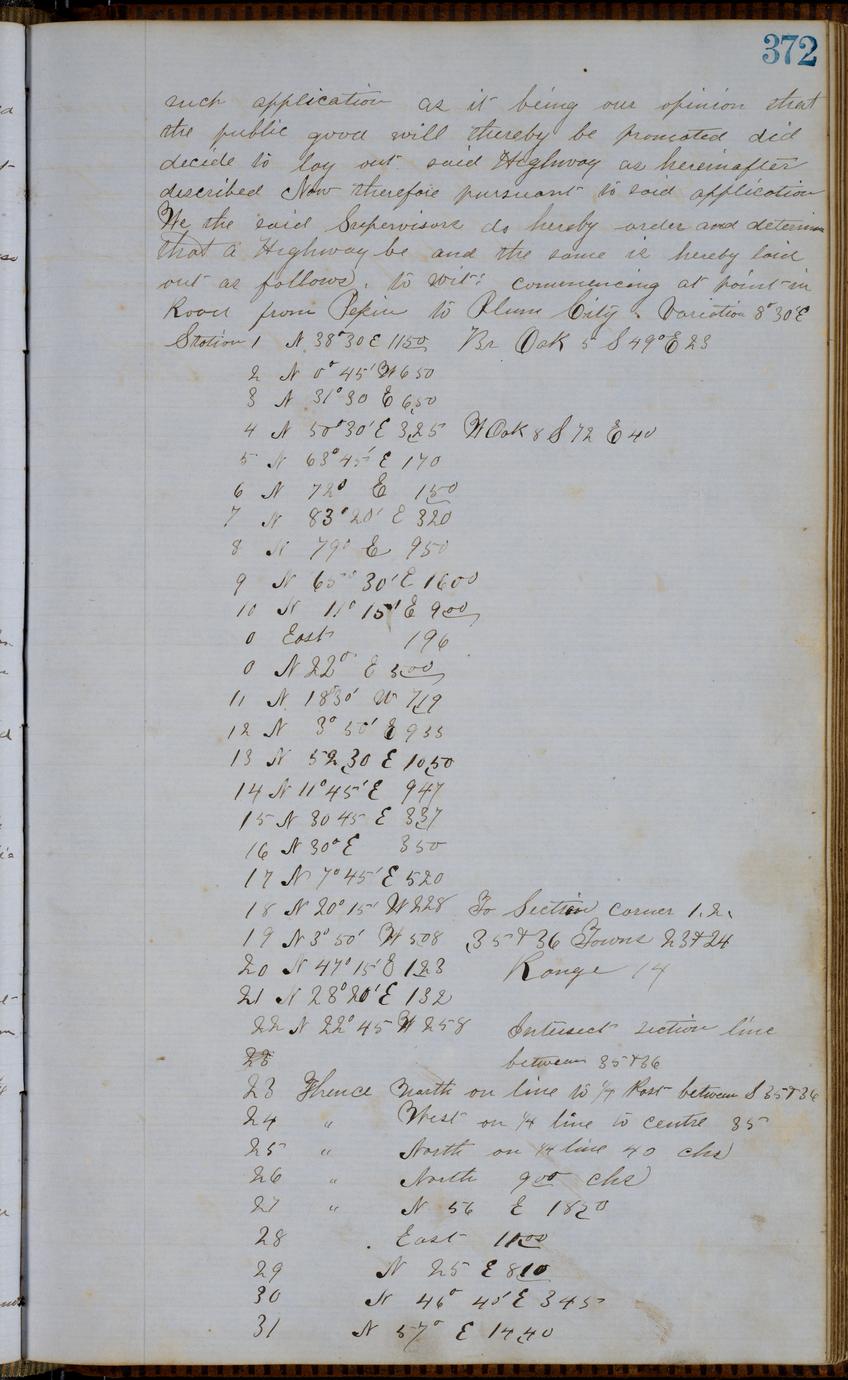 372
such application as it being our opinion that
the public good will thereby be promoted did
decide to lay out said Highway as hereinafter
discribed Now therefore pursuant to said application
We the said Supervisors do hereby order and determin
that a Highway be and the same is hereby laid
out as follows, to wit: commencing at point in
Road from Pepin to Plum City. Variation 8°30'E
Station 1 N 38°30 E 1150 Br Oak 5 S 49° E 23
2 N 0° 45' W 650
3 N 31°30 E 650
4 N 50°30' E 325 W Oak 8 S 72 E 40
5 N 63°45' E 170
6 N 72° E 150
7 N 83°20' E 320
8 N 79° E 950
9 N 65° 30' E 1600
10 N 11° 15' E 900
0 East 196
0 N 22° E 500
11 N 18°30' W 719
12 N 3° 50' E 933
13 N 52 30 E 1050
14 N 11°45' E 947
15 N 30 45 E 337
16 N 30° E 350
17 N 7°45' E 520
18 N 20° 15' W 228 To Section corner 1.2.
19 N 3° 50' W 508 35 & 36 Towns 23 & 24
20 N 47° 15' E 123 Range 14
21 N 28°20' E 132
22 N 22° 45 W 258 Intersect section line
23 between 35 & 36
23 Thence North on line to 1/4 Post between S 35 & 36
24 " West on 1/4 line to centre 35
25 " North on 1/4 line 40 chs
26 " North 900 chs
27 " N 56 E 1820
28 East 1100
29 N 25 E 810
30 N 46° 45' E 345
31 N 57° E 1440